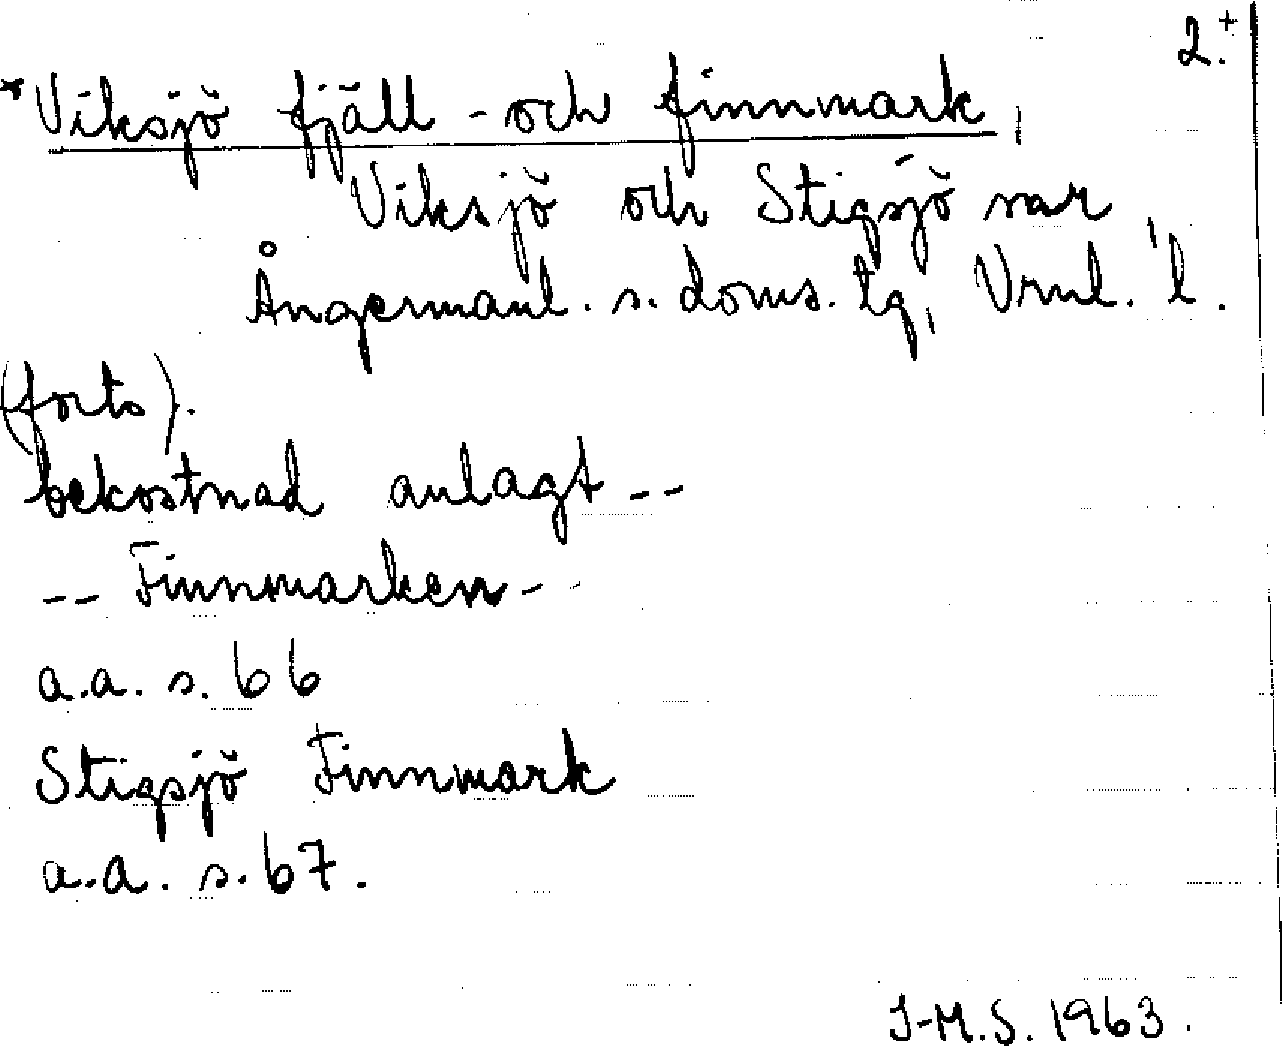 2.+
*Viksjö fjäll- och finnmark,
Viksjö och Stigsjö snar
Ångermanl. s. doms. tg, Vrnl. l.
(forts).
bekostnad anlagt --
-- Finnmarken --
a.a. s. 66
Stigsjö Finnmark
a.a. s. 67.
J-M.S. 1963.